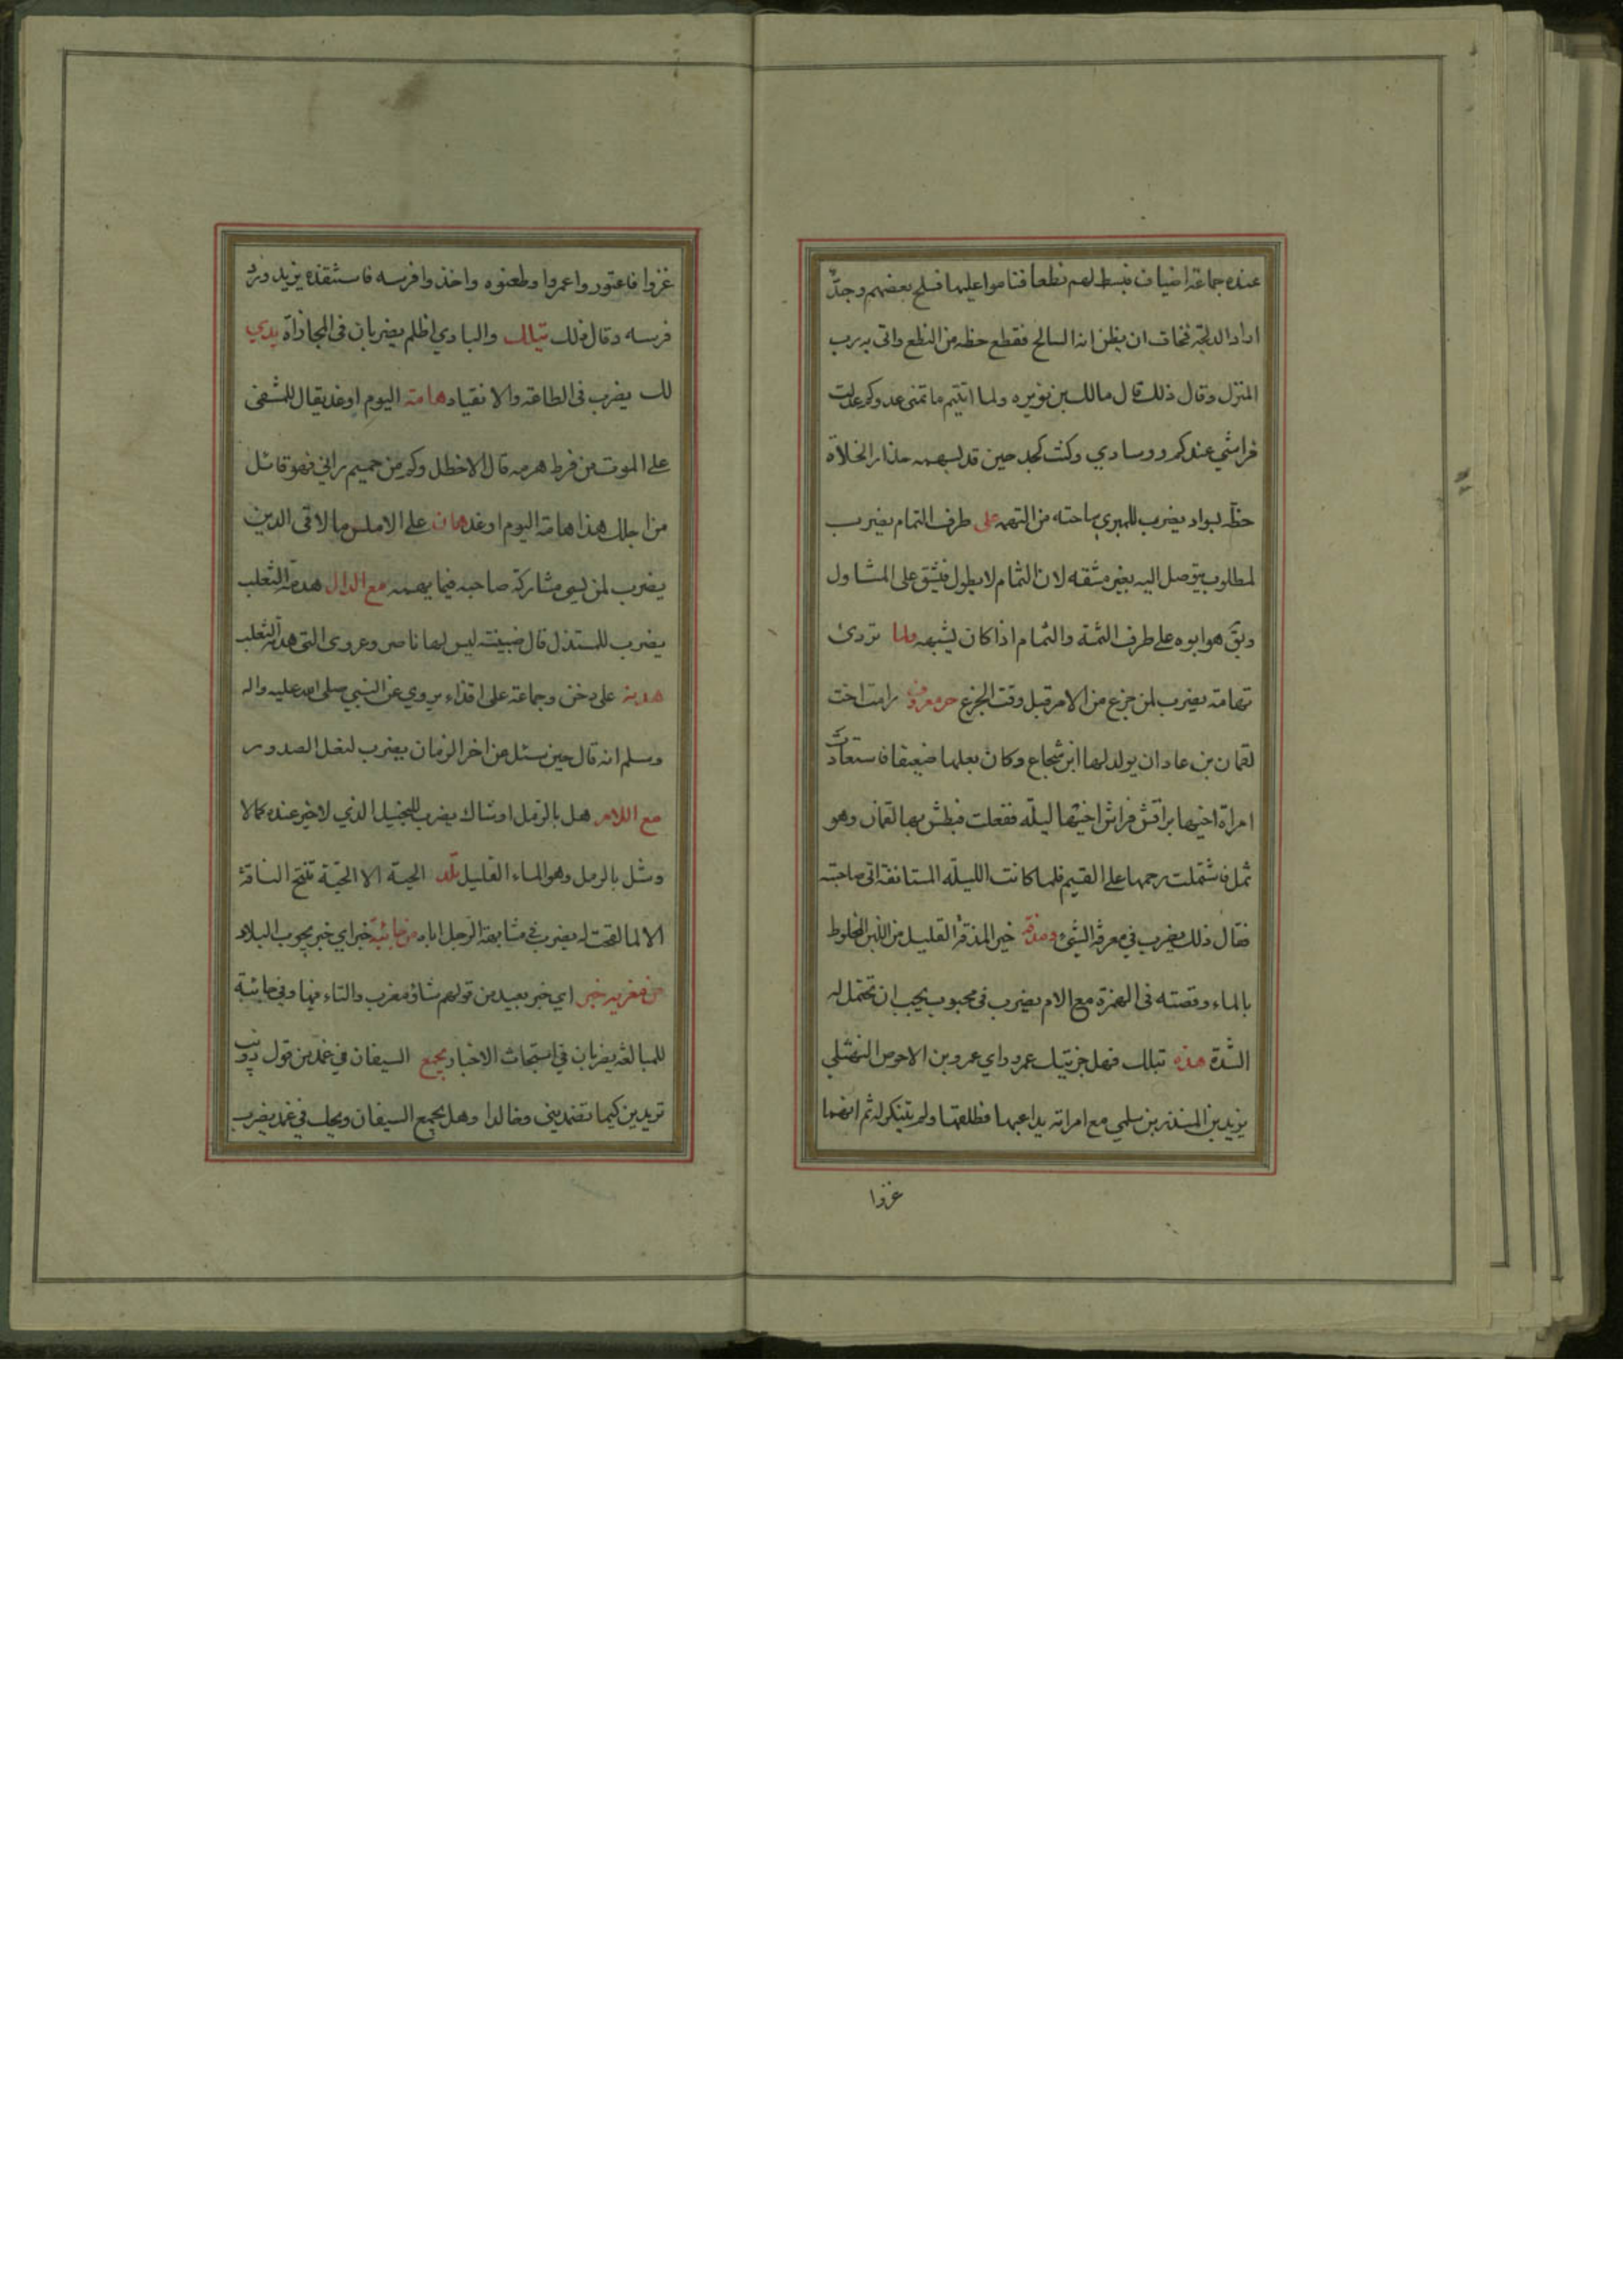 عنده جماعة اضياف فبسط لهم نطعا فناموا عليها فسلح بعضهم وجدّ
اراد الدلجة فخاف ان يظن انه السالح فقطع حظه من النطع واتى به رب
المنزل وقال ذلك قال مالك بن نويره ولما اتيتم ما تمنى عدوكم عدلت
فراشي عندكم ووسادي وكنت كجد حين قد بسهمه حذار الخلاة
حظه بواد يضرب للمبري ساحته من التهمه على طرف الثمام يضرب
لمطلوب يتوصل اليه بغير مشقه لان الثمام لا يطول فيشق على المشاول
ويق هو ابوه على طرف الثمة والثمام اذا كان يشبهه ولما تردى
تهامة يضرب لمن جزع من الامر قبل وقت الجزع حره معروف رامت اخت
لقمان بن عاد ان يولد لها ابن شجاع وكان بعلها ضعيفا فاستعادت
امراة اخيها براقش فراش اخيها ليله ففعلت فبطش بها لقمان وهو
ثمل فاشتملت رحمها على القيم فلما كانت الليله المستانفة اتى صاحبته
فقال ذلك يضرب في معرفة الشيء ومذقه خير المذقة القليل من اللبن المخلوط
بالماء وقصته في الهمزة مع الام يضرب في محبوب يجب ان تحتمل له
الشدة هذه بتلك فهل جزيتك عمرو اي عمرو بن الاحوص النهشلي
يزيد بن المنذر بن سلمى مع امراته يداعبها فطلقها ولم يتنكر له ثم انهما
غزوا
غزوا فاعتوروا عمروا وطعنوه واخذوا فرسه فاستنقذه يزيد ورد
فرسه وقال ذلك بتلك والبادي اظلم يضربان في المجازاة يدي
لك يضرب في الطاعة والانقياد هامة اليوم او غد يقال للمشفى
على الموت من فرط هرمه قال الاخطل وكم من حميم راني فهو قائل
من اجلك هذا هامة اليوم او غد هان على الاملس ما لاقى الدبر
يضرب لمن يسئ مشاركة صاحبه فيما يهمه مع الدال هدمة الثعلب
يضرب للمستذل قال ضبينة ليس لها ناصر وعروى التي هدم الثعلب
هدنة على دخن وجماعة على اقذاء يروي عن النبي صلى الله عليه واله
وسلم انه قال حين سئل عن اخر الزمان يضرب لنغل الصدور
مع اللام هل بالرمل اوشاك يضرب للبخيل الذي لا خير عنده كما لا
وشل بالرمل وهو الماء القليل تلد الحية الا الحية تنتج الناقة
الا لما لقحت له يضرب في مشابهة الرجل اباه من جائبة خبر اي خبر يجوب البلاد
من مغربه خبر اي خبر بعيد من قولهم شاؤ مغرب والتاء فيها وفي جائبة
للمبالغة يضربان في استبحاث الاخبار يجمع السيفان في غمد من قول ذويب
تريدين كيما تضمديني وخالدا وهل يجمع السيفان ويحك في غمد يضرب